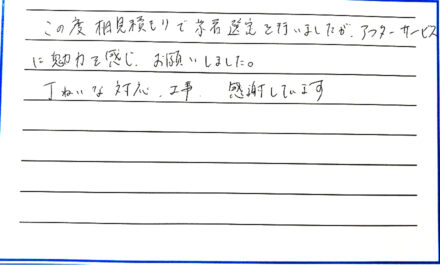 この度 相見積もりで業者選定を行いましたが、アフターサービス
に魅力を感じ、お願いしました。
丁ねいな対応、工事、感謝しています